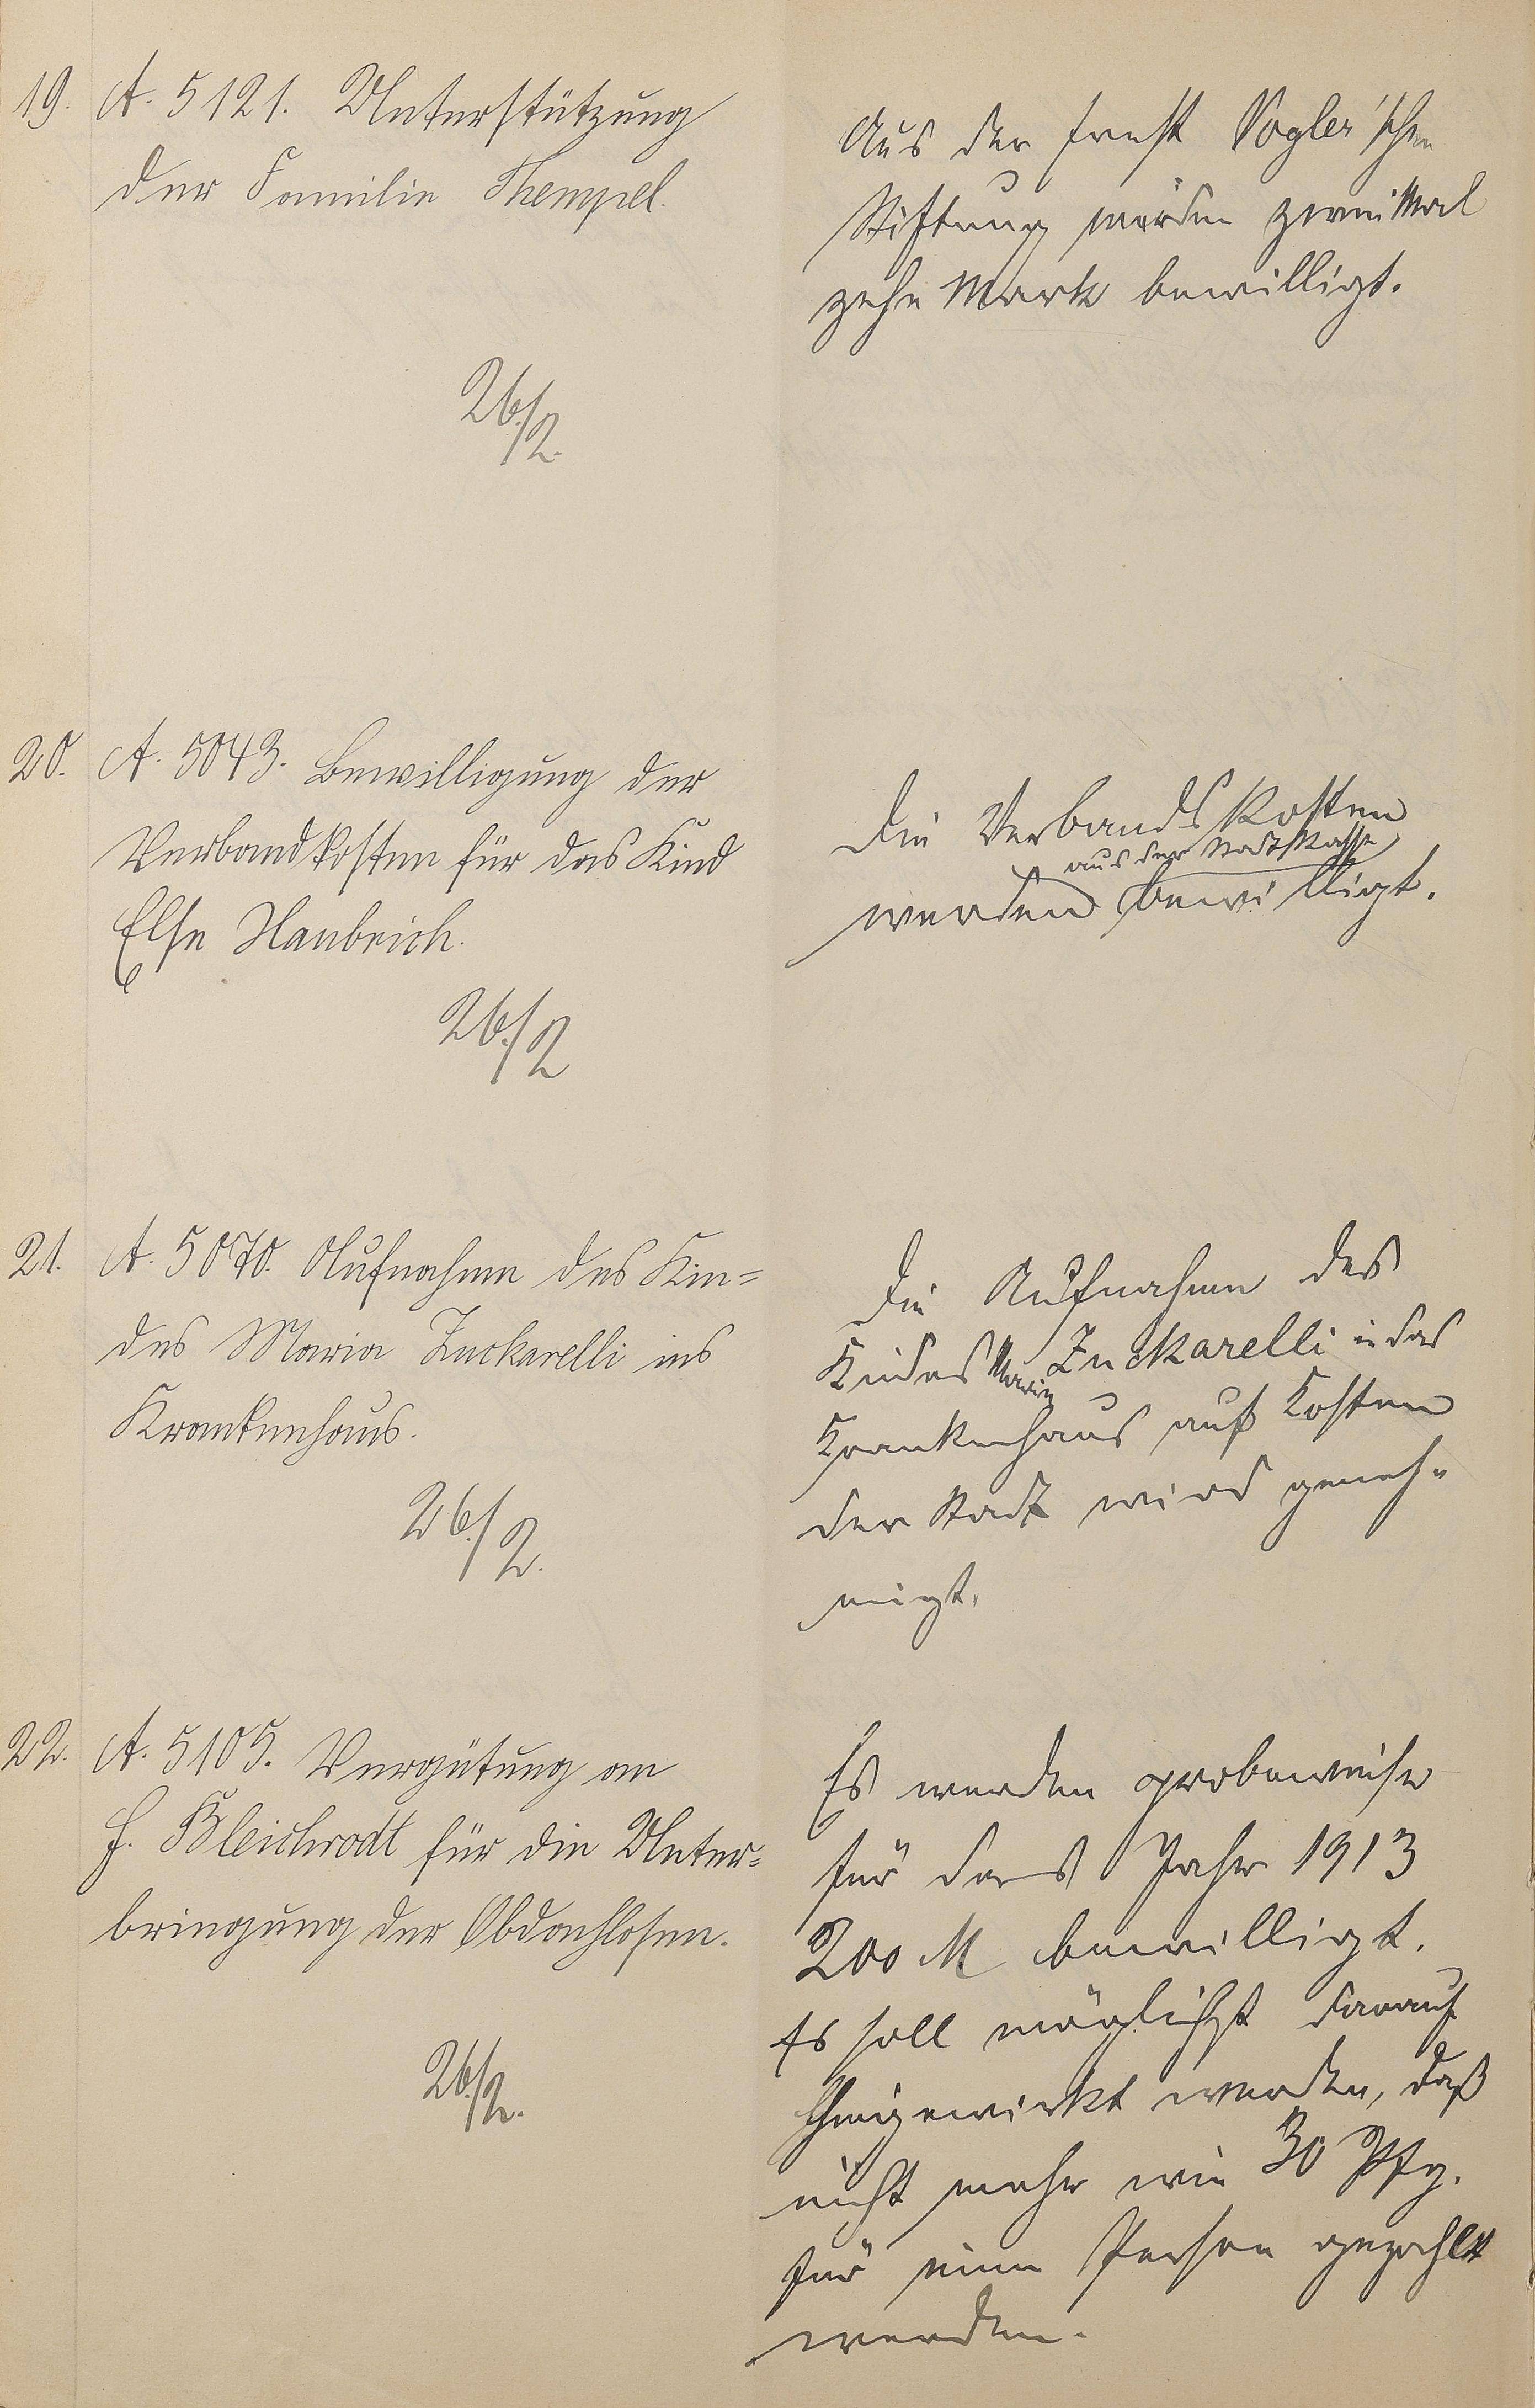 19. A. 5121. Unterstützung
der Familie Thempel.
26./2.
Aus der Ernst Vogler'schen
Stiftung werden zweimal
zehn Mark bewilligt.
20. A. 5043. Bewilligung der
Verbandkosten für das Kind
Else Haubrich.
26./2
Die Verbandskosten
aus der Stadtkasse
werden bewilligt.
21. A. 5070. Aufnahme des Kin=
des Maria Zuckarelli ins
Krankenhaus.
26./2.
Die Aufnahme des
Kindes Maria Zuckarelli in das
Krankenhaus auf Kosten
der Stadt wird geneh-
migt.
22. A. 5105. Vergütung an
H. Bleichrodt für die Unter=
bringung der Obdachlosen.
26./2.
Es werden probeweise
für das Jahr 1913
200 M bewilligt.
Es soll möglichst darauf
hingewirkt werden, daß
nicht mehr wie 30 Pfg.
für eine Person gezahlt
werden.